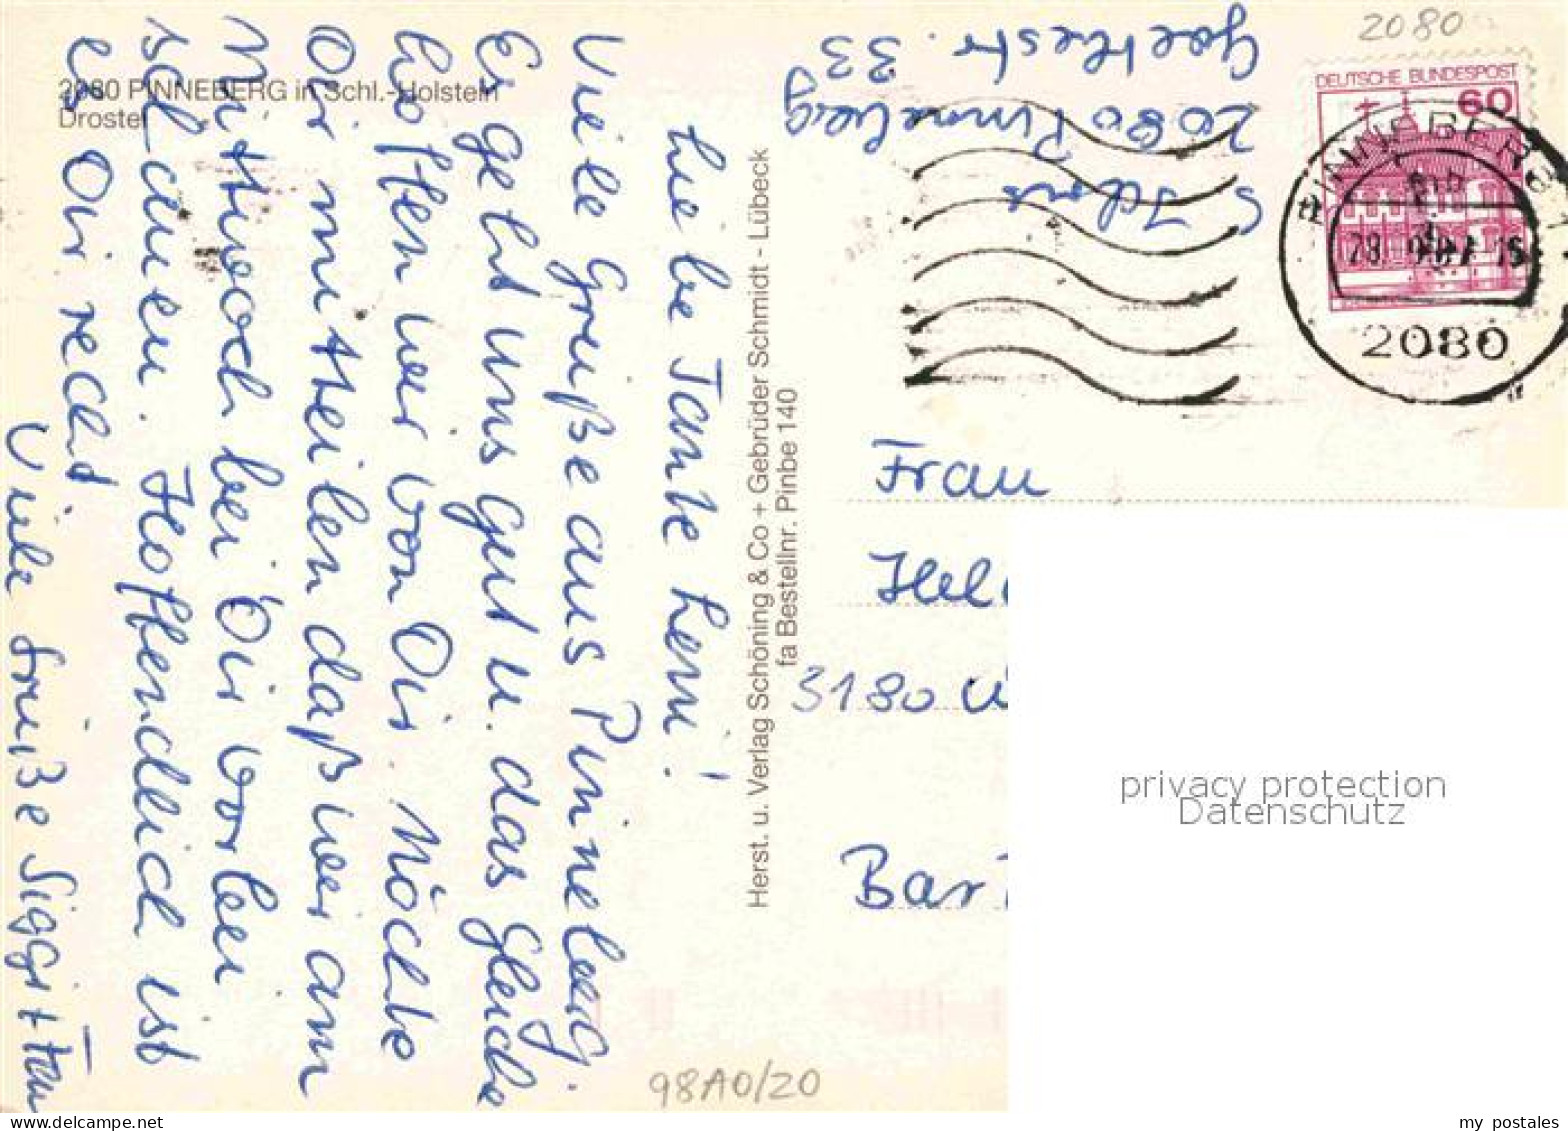 2080 PINNEBERG in Schl.-Holstein
Drostei
Liebe Tante Leni!
Viele Grüße aus Pinneberg.
Es geht uns gut u. das Gleiche
hoffen wir von Dir. Möchte
Dir mitteilen daß wir am
Mittwoch bei Dir vorbei
schauen. Hoffendlich ist
es Dir recht
Viele Grüße Siggi + Fam
Herst. u. Verlag Schöning & Co + Gebrüder Schmidt - Lübeck
fa Bestellnr. Pinbe 140
2080 Pinneberg
Goethestr. 33
2080
DEUTSCHE BUNDESPOST
60
PINNEBERG 1
2080
Frau
3180
privacy protection
Datenschutz
98A0/20
my_postales